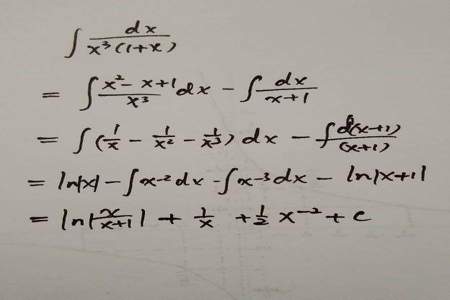 ∫ dx / x³(1+x)
= ∫ x²-x+1 / x³ dx - ∫ dx / x+1
= ∫ (1/x - 1/x² - 1/x³) dx - ∫ d(x+1) / (x+1)
= ln|x| - ∫x⁻²dx - ∫x⁻³dx - ln|x+1|
= ln|x/x+1| + 1/x + 1/2 x⁻² + c